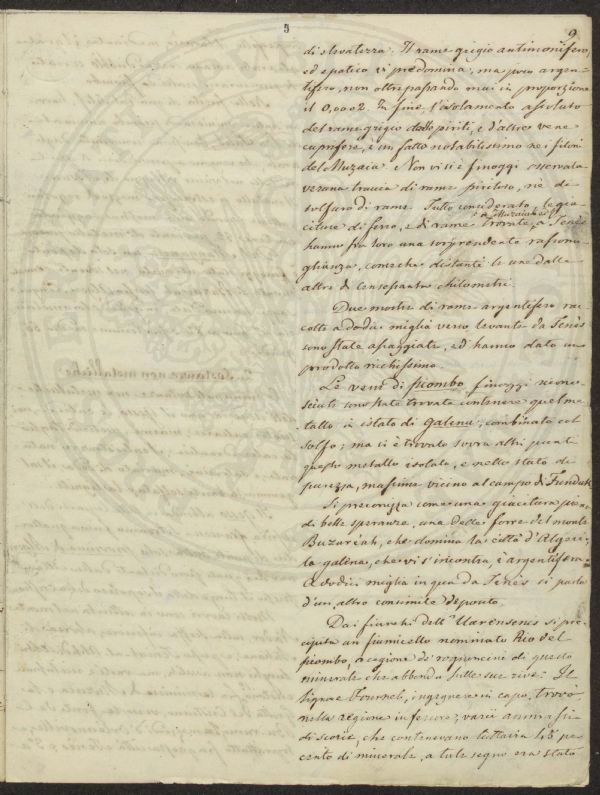 5
9
di elvatezza. Il rame grigio antimonifero,
ed epatico vi predomina, ma poco argen-
tifero, non oltrepassando mai in proporzione
il 0,0002. In fine l'isolamento assoluto
del rame grigio dalle piriti, e d'altre vene
cuprifere, è un fatto notabilissimo nei filoni
del Muzaia. Non vi si è finoggi osservata
veruna traccia di rame piritoso, nè di
solfuro di rame. Tutto considerato, le gia-
a Muzaia e
citure di ferro, e di rame trovate, a Tenès
hanno fra loro una sorprendente rassomi-
glianza, comechè distanti le une dalle
altre di censessanta chilometri.
Due mostre di rame argentifero rac
colte a dodici miglia verso levante da Tenès
sono state assaggiate, ed hanno dato un
prodotto ricchissimo.
Le vene di piombo finoggi ricono-
sciute sono state trovate contenere quel me-
tallo in istato di galena, combinato col
solfo; ma si è trovato sovra altri punti
questo metallo isolato, e nello stato di
purezza, massime vicino al campo di Funduk
Si preconizza come una giacitura piena
di belle speranze, una delle forre del monte
Buzaréah, che domina la città d'Algeri:
la galena, che vi s'incontra, è argentifera.
A dodici miglia in qua da Tenès si parla
d'un altro consimile deposito.
Dai fianchi dell' Uarensenis si pre-
cipita un fiumicello nominato Rio del
piombo, a cagione de' di questo
minerale che abbonda sulle sue rive. Il
signor Fournel, ingegnere in capo, trovò
nella regione inferiore, varii ammassi
di scorie, che contenevano tuttavia 45 per
cento di minerale, a tale segno era stato
Sostanze non metalliche